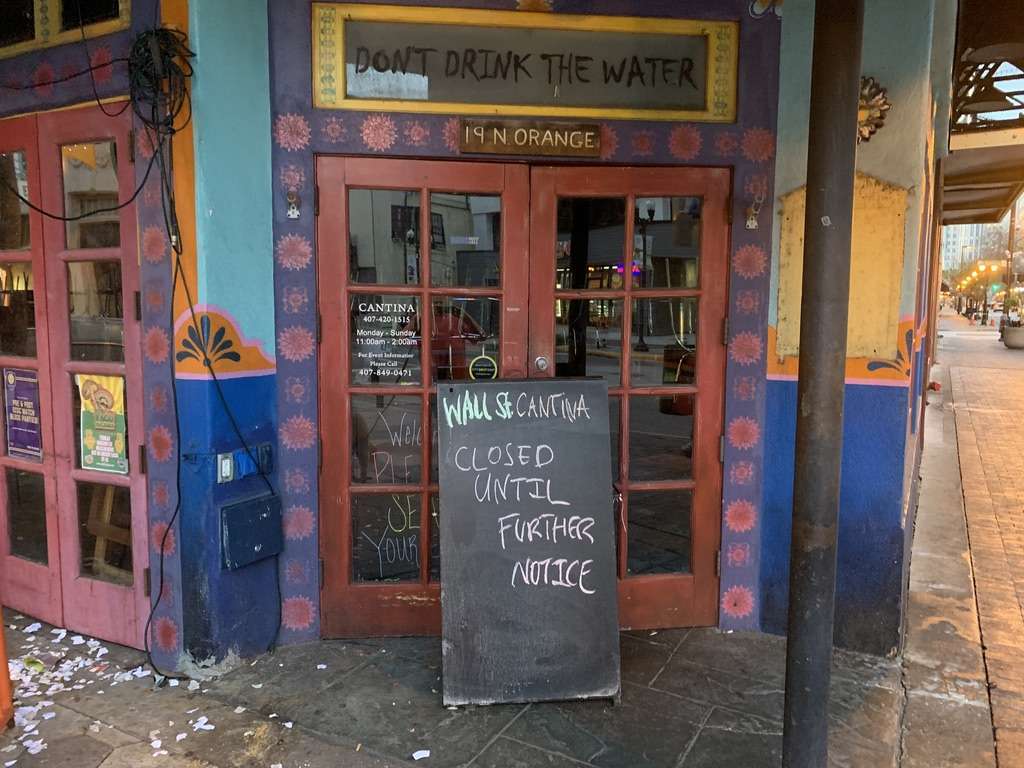 DON'T DRINK THE WATER
19 N. ORANGE
CANTINA
407-420-1515
Monday - Sunday
11:00am - 2:00am
For Event Information
Please Call
407-849-0471
WALL St. CANTINA
CLOSED
UNTIL
FURTHER
NOTICE
PLE
SE
YOUR